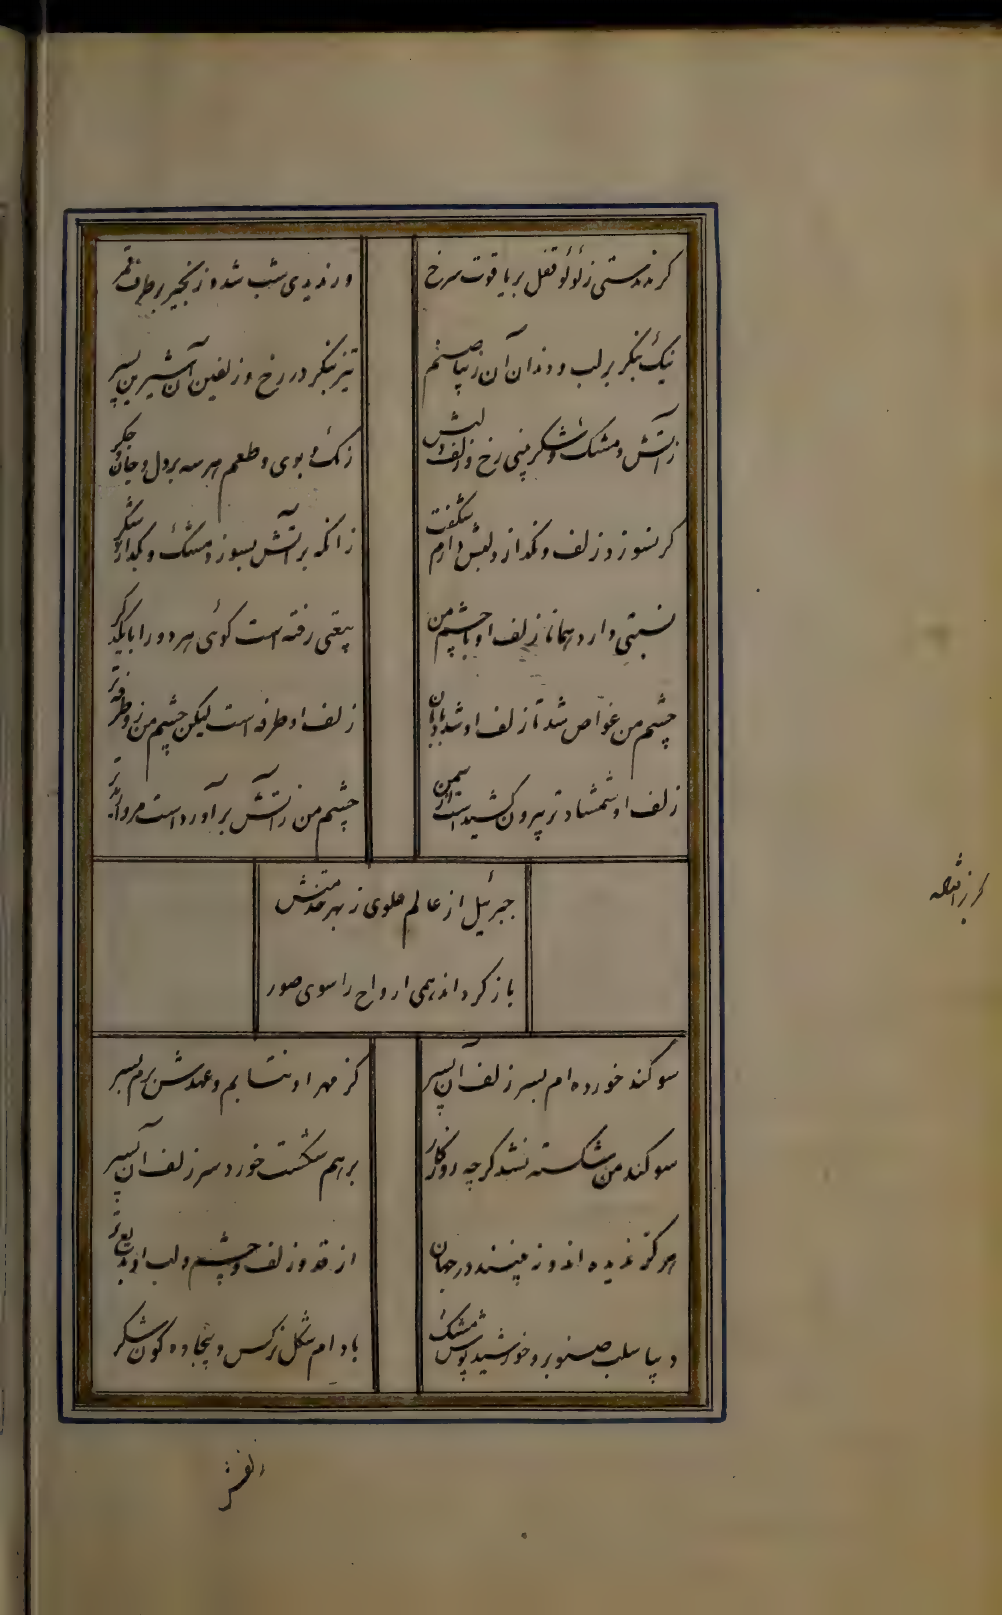 کر ندیدستی ز لؤلؤ قفل بر یاقوت سرخ
ور ندیدی شب شده زنجیر بر طرف قمر
نیک بنکر بر لب و دندان آن زیبا صنم
تیز بنکر در رخ و زلفین آن شیرین پسر
زآتش و مشک و شکر بینی رخ و زلف و لبش
رنک و بوی و طعم هر سه بر دل و جان و جکر
کر نسوزد زلف و نکدازد لبش دارم شکفت
زانکه بر آتش بسوزد مشک و بکدازد شکر
نسبتی دارد همانا زلف او با چشم من
بیعتی رفته است کوئی هر دو را با یکدکر
چشم من غواص شد تا زلف او شد بادبان
زلف او طرفه است لیکن چشم من زو طرفه تر
زلف او شمشاد تر بیرون کشیدست از سمن
چشم من زآتش برآورده است مروارید تر
جبرئیل از عالم علوی ز بهر خدمتش
باز کرداند همی ارواح را سوی صور
سوکند خورده ام بسر زلف آن پسر
کز مهر او نتابم و عهدش برم بسر
سوکند من شکسته نشد کرچه روزکار
بر هم شکست خورد سر زلف آن پسر
هرکز ندیده اند و نبینند در جهان
از قد و زلف و چشم و لب او بدیع تر
دیبا سلب صنوبر و خورشید پوش مشک
بادام شکل نرکس و بیجاده کون شکر